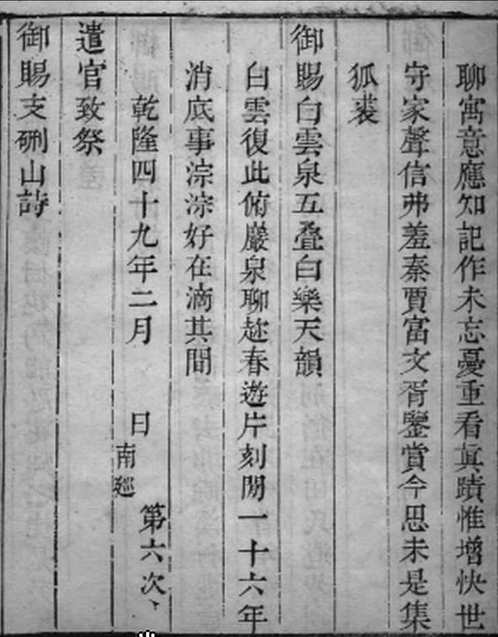 聊寓意應知記作未忘憂重看真蹟惟增怏世
守家聲信弗羞秦賈富文胥鑒賞今思未是集
狐裘
御賜白雲泉五叠白樂天韻
白雲復此俯巖泉聊趂春遊片刻閒一十六年
消底事淙淙好在滴其間
乾隆四十九年二月 日南廵第六次、
遣官致祭
御賜支硎山詩